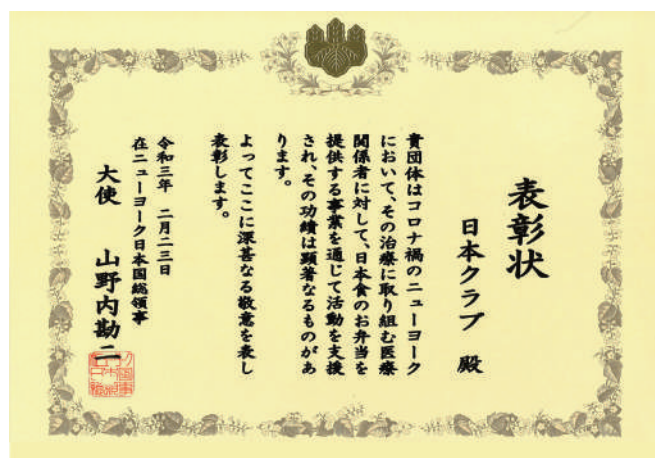 表彰状
日本クラブ 殿
貴団体はコロナ禍のニューヨーク
において、その治療に取り組む医療
関係者に対して、日本食のお弁当を
提供する事業を通じて活動を支援
され、その功績は顕著なるものがあ
ります。
よってここに深甚なる敬意を表し
表彰します。
令和三年 二月二三日
在ニューヨーク日本国総領事
大使 山野内勘二